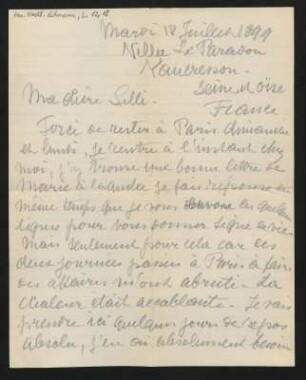 Mardi 18 Juillet 1899
Villa Le Paradou
Vaucresson.
Seine et Oise
France
Ma chère Lilli.
Forcé de rester à Paris dimanche
et lundi, je rentre à l'instant chez
moi, j'y trouve une bonne lettre de
Marie à laquelle je fais réponse en
même temps que je vous envoie ces quelques
lignes pour vous donner signe de vie.
Mais seulement pour cela car ces
deux journées passées à Paris à faire
des affaires m'ont abruti. La
chaleur était accablante. Je vais
prendre ici quelques jours de repos
absolu, j'en ai absolument besoin